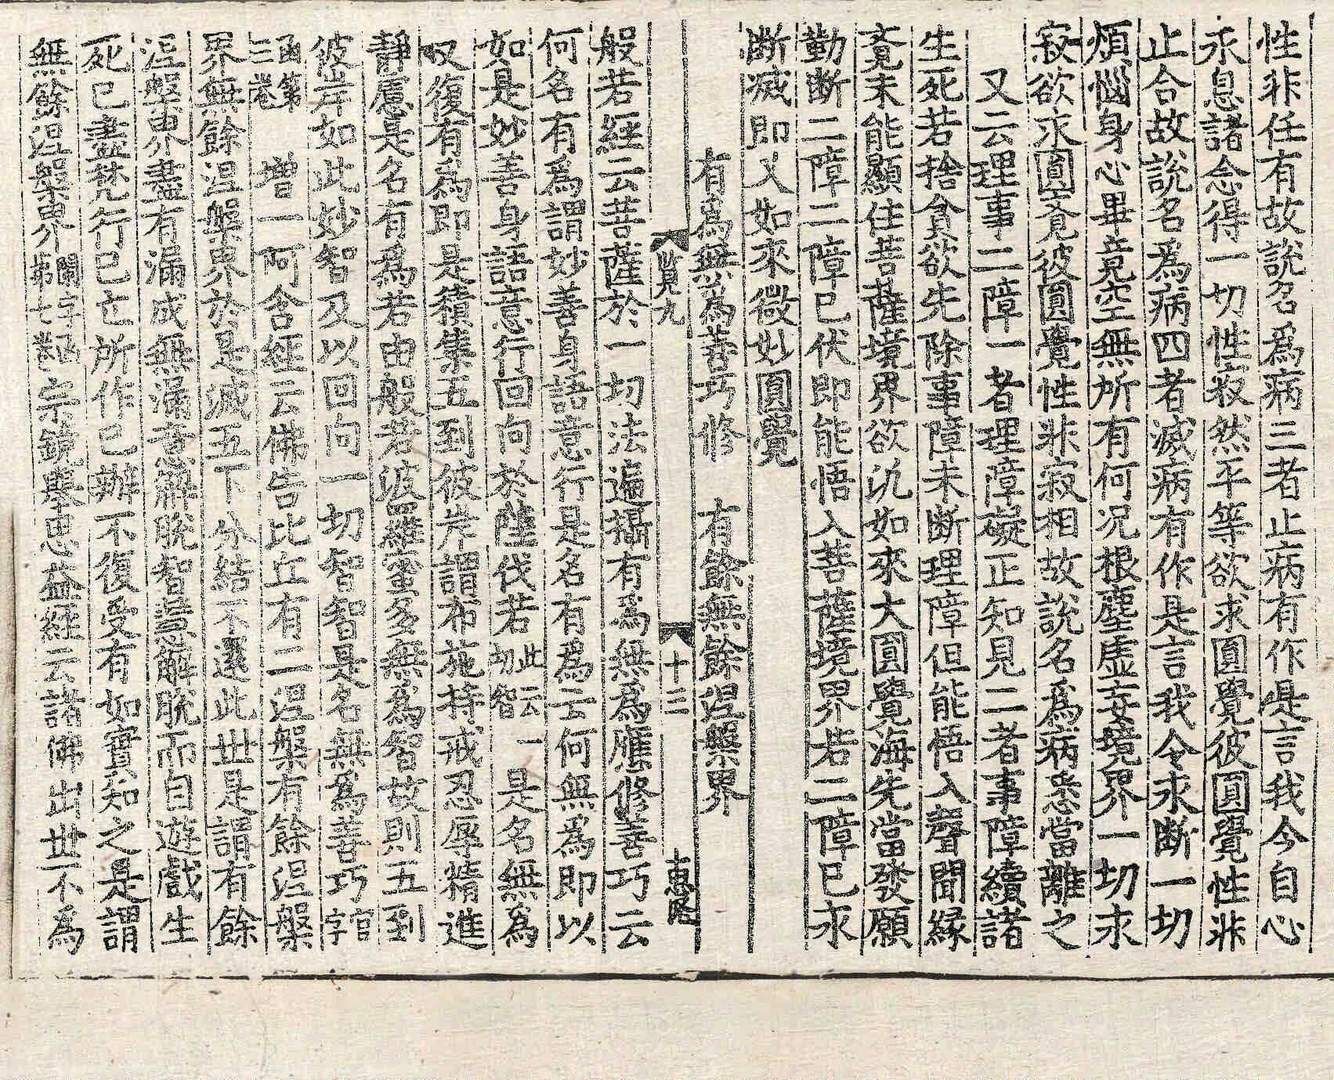 性非任有故說名爲病三者止病有作是言我今自心
永息諸念得一切性寂然平等欲求圓覺彼圓覺性非
止合故說名爲病四者滅病有作是言我今求斷一切
煩惱身心畢竟空無所有何況根塵虛妄境界一切求
寂欲求圓覺彼圓覺性非寂相故說名爲病悉當離之
又云理事二障一者理障礙正知見二者事障續諸
生死若捨貪欲先除事障未斷理障但能悟入聲聞緣
竟未能顯住菩薩境界欲汎如來大圓覺海先當發願
勤斷二障二障已伏即能悟入菩薩境界若二障已永
斷滅即入如來微妙圓覺
有爲無爲善巧修 有餘無餘涅槃界
覓九 十三
般若經云菩薩於一切法遍攝有爲無爲應修善巧云
何名有爲謂妙善身語意行是名有爲云何無爲即以
如是妙善身語意行回向於薩伐若此云一切智是名無爲
又復有爲即是積集五到彼岸謂布施持戒忍辱精進
靜慮是名有爲若由般若波羅蜜多無爲智故則五到
彼岸如此妙智及以回向一切智智是名無爲善巧官字
函第三卷 增一阿含經云佛告比丘有二涅槃有餘涅槃
界無餘涅槃界於是滅五下分結不還此世是謂有餘
涅槃界盡有漏成無漏意解脫智慧解脫而自遊戲生
死已盡梵行已立所作已辦不復受有如實知之是謂
無餘涅槃界闕字函第七卷宗鏡舉思益經云諸佛出世不爲